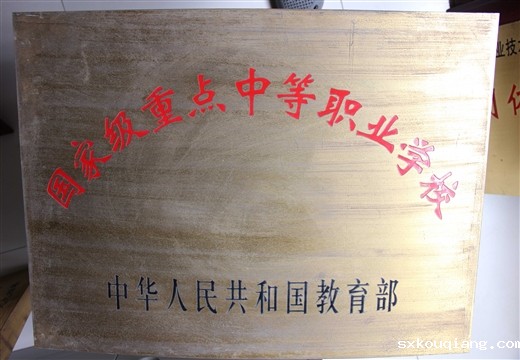 国家级重点中等职业学校
中华人民共和国教育部
业技
sxkouqiang.com